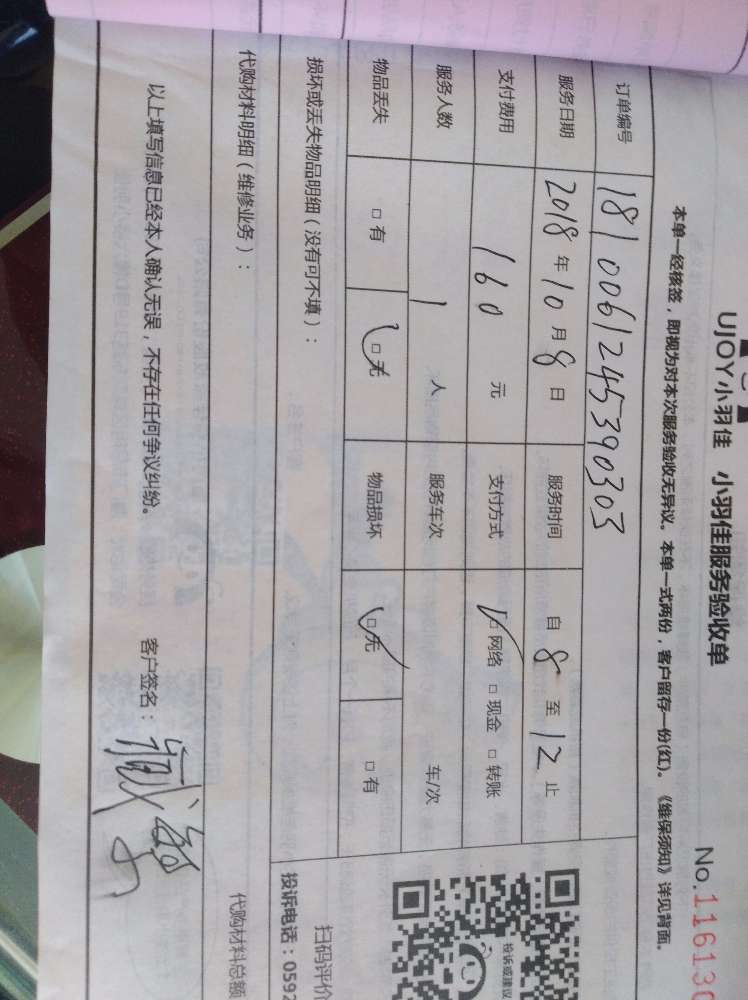 UJOY小羽佳 小羽佳服务验收单
No.116130
本单一经核签，即视为对本次服务验收无异议。本单一式两份，客户留存一份(红)。《维保须知》详见背面。
订单编号 1810061245390303
服务日期 2018年10月8日 服务时间 自8至12止
支付费用 160元 支付方式 □网络 □现金 □转账
服务人数 1人 服务车次 车/次
物品丢失 □有 □无 物品损坏 □无 □有
损坏或丢失物品明细（没有可不填）：
投诉或建议
扫码评价
投诉电话：0592
代购材料明细（维修业务）：
代购材料总额
以上填写信息已经本人确认无误，不存在任何争议纠纷。 客户签名：